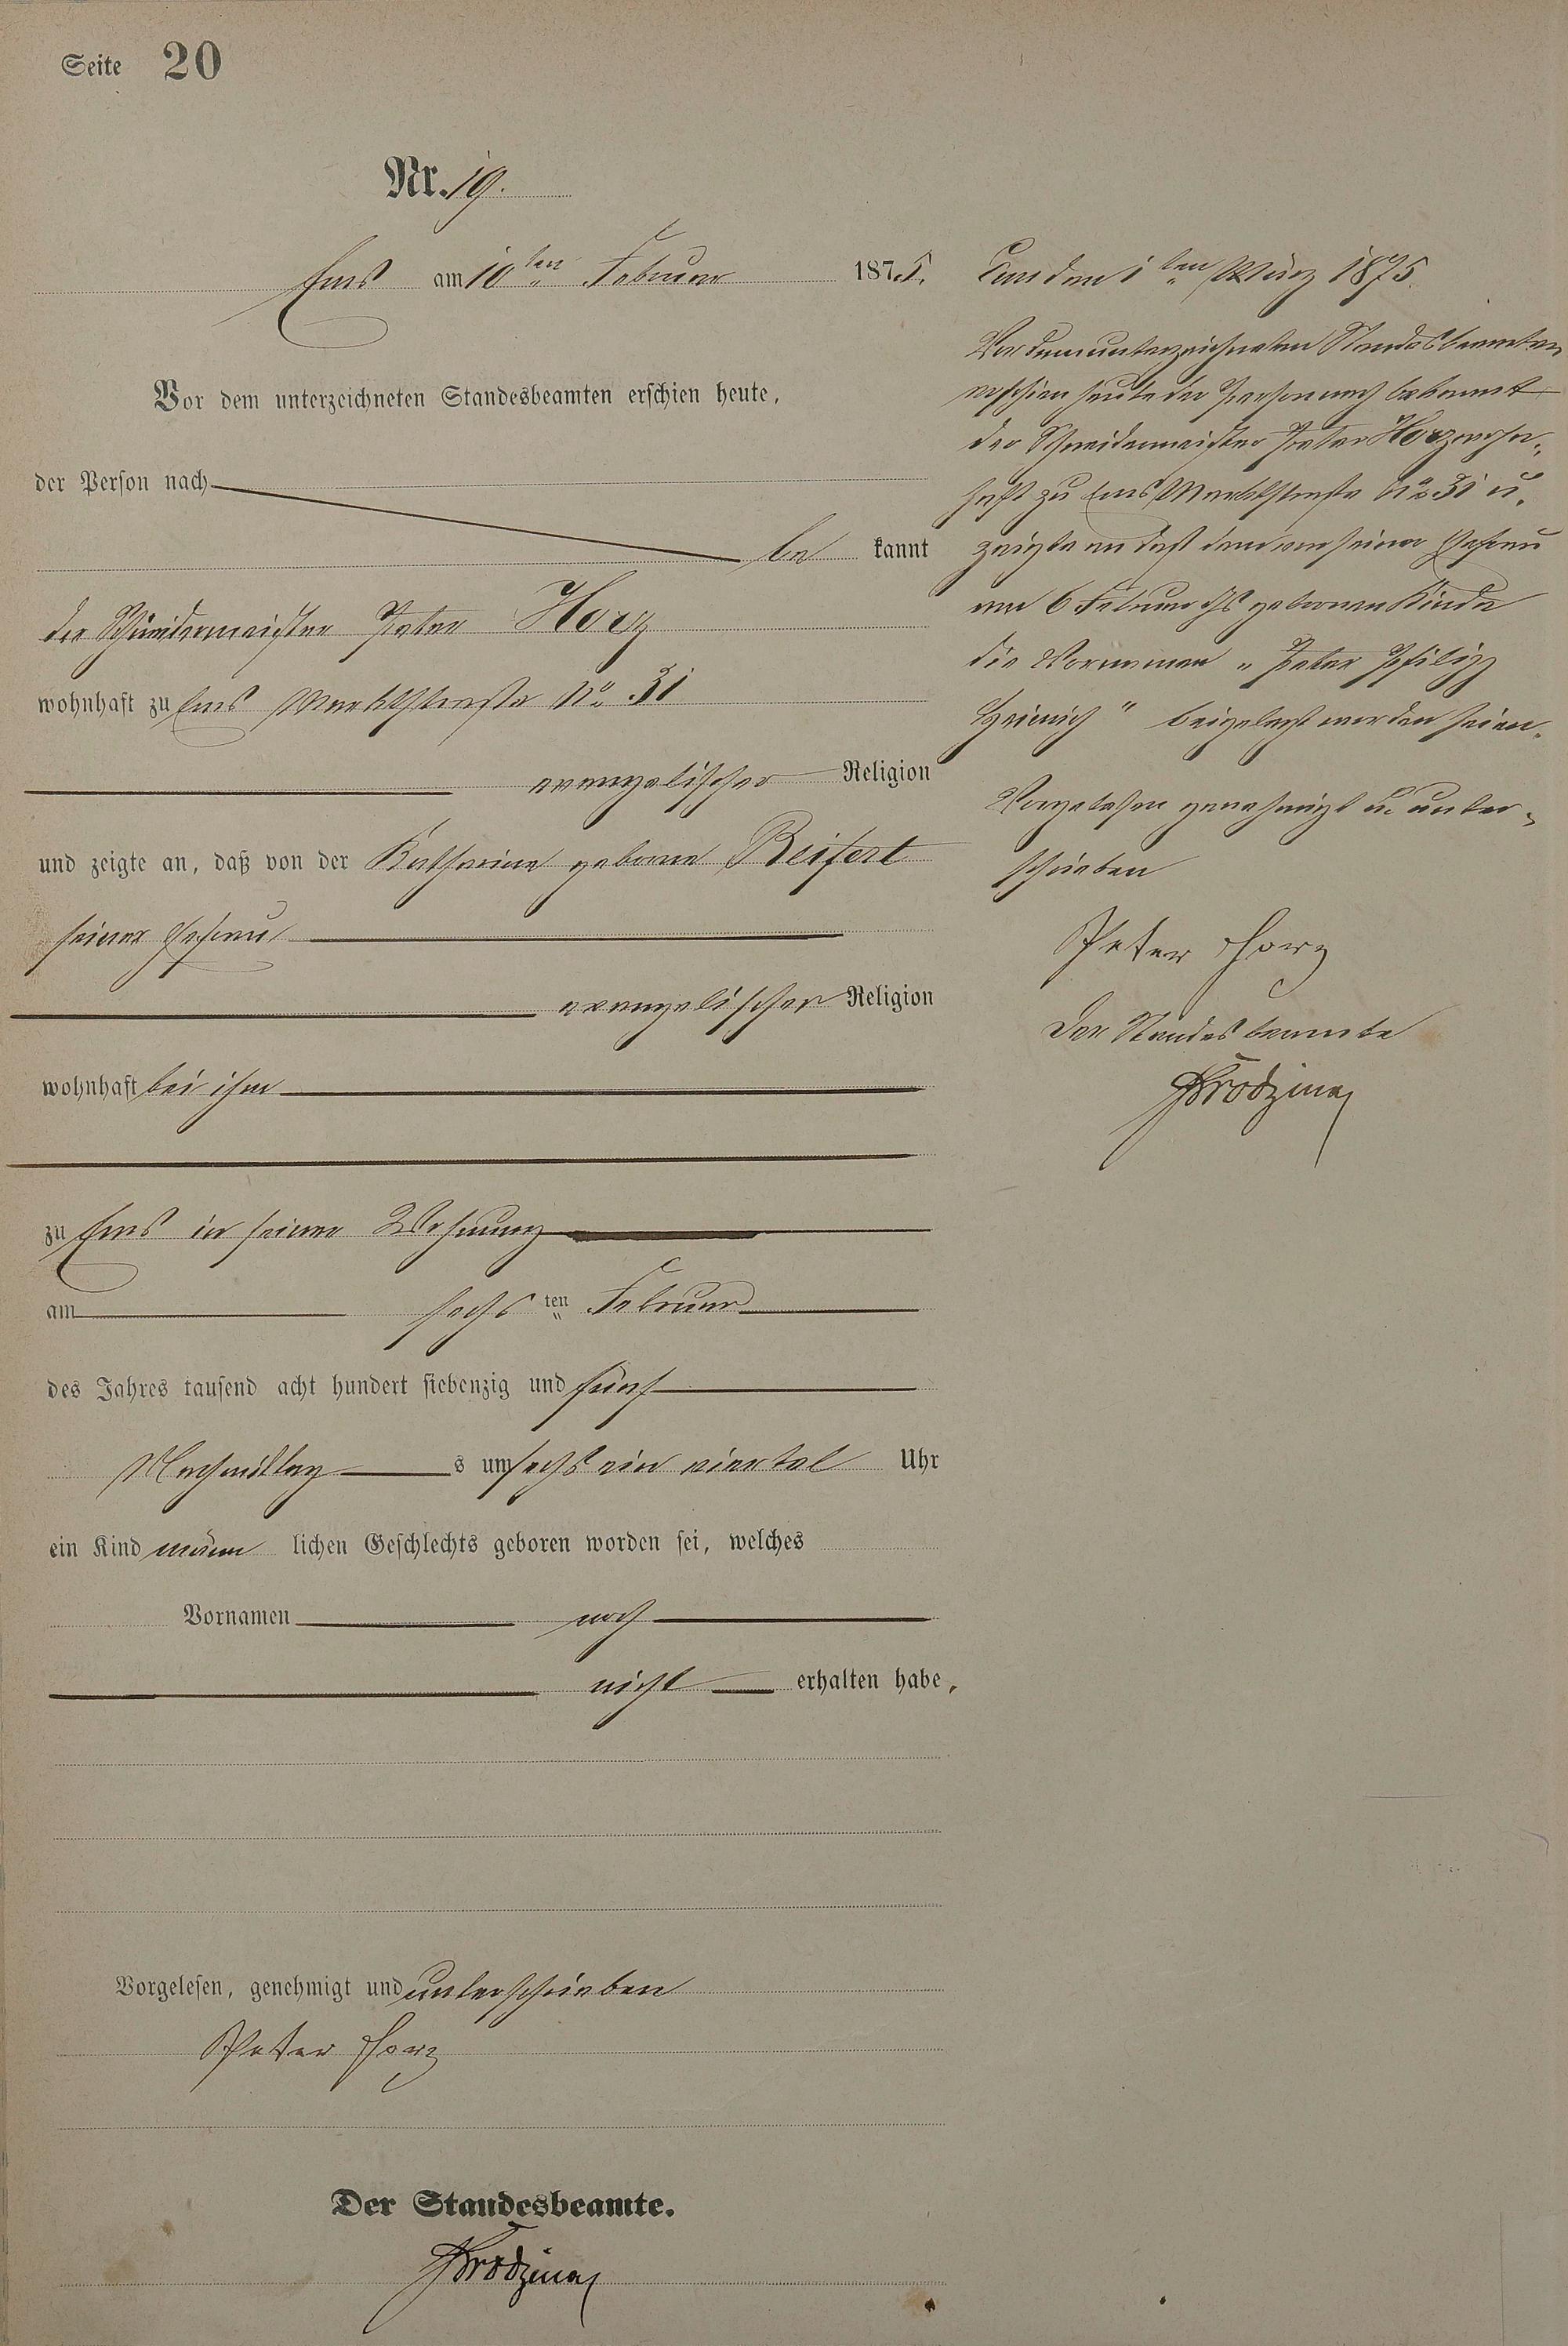 Seite 20
Nr. 19.
Ems am 10ten Februar 1875.
Vor dem unterzeichneten Standesbeamten erschien heute,
der Person nach
be kannt
der Schneidermeister Peter Horz
wohnhaft zu Ems Marktstraße No 31
evangelischer Religion
und zeigte an, daß von der Katharina geborne Reifert
seiner Ehefrau
evangelischer Religion
wohnhaft bei ihm
zu Ems in seiner Wohnung
am sechsten Februar
des Jahres tausend acht hundert siebenzig und fünf
Nachmittags um sechs ein viertel Uhr
ein Kind männlichen Geschlechts geboren worden sei, welches
Vornamen noch
nicht erhalten habe,
Vorgelesen, genehmigt und unterschrieben
Peter Horz
Der Standesbeamte.
den 1ten März 1875.
Vor dem unterzeichneten Standesbeamten
erschien heute der Person nach bekannt
der Schneidermeister Peter Horz wohn-
haft zu Ems Marktstraße No 31 u.
zeigte an daß dem von seiner Ehefrau
am 6 Februar geborenen Kinde
die Vornamen "Peter Philipp
Heinrich" beigelegt worden seien.
Vorgelesen genehmigt u. unter-
schrieben
Peter Horz
Der Standesbeamte